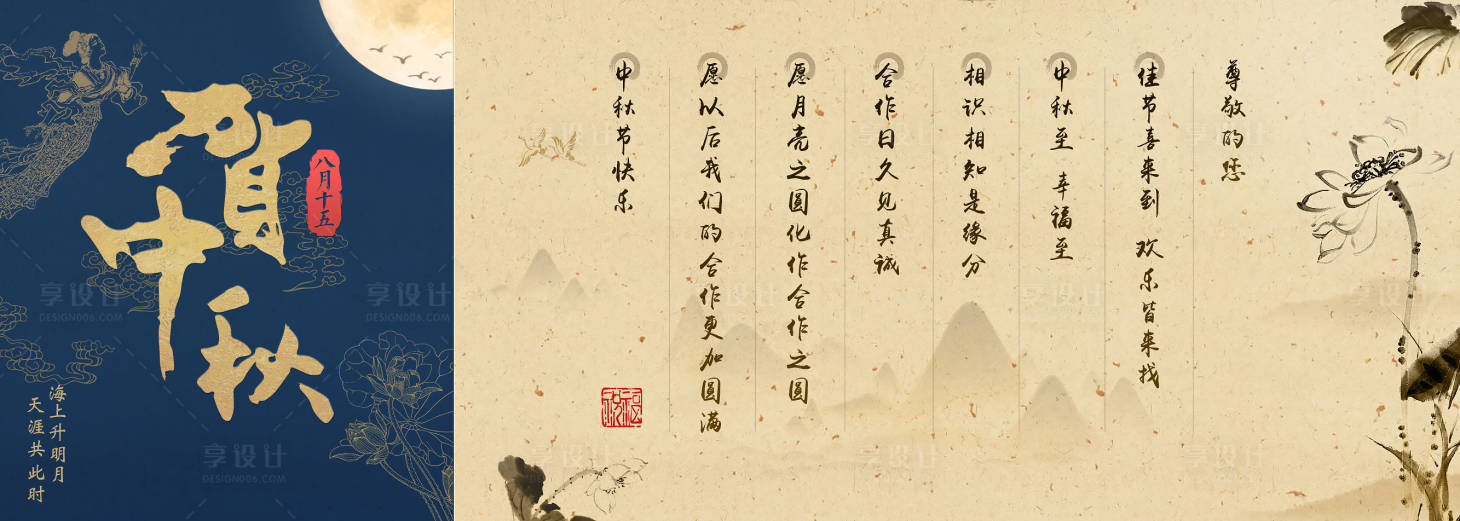 贺中秋
八月十五
海上升明月
天涯共此时
尊敬的您
佳节喜来到 欢乐皆来找
中秋至 幸福至
相识相知是缘分
合作日久见真诚
愿月亮之圆化作合作之圆
愿以后我们的合作更加圆满
中秋节快乐
享设计
DESIGN006.COM
享设计
DESIGN006.COM
享设计
DESIGN006.COM